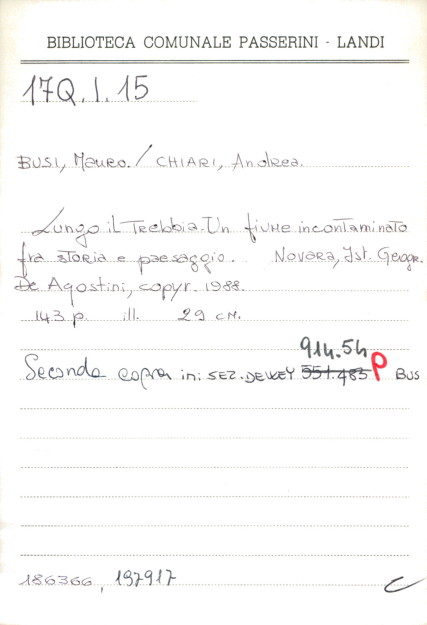 BIBLIOTECA COMUNALE PASSERINI - LANDI
17Q.I.15
BUSI, Mauro. / CHIARI, Andrea.
Lungo il Trebbia. Un fiume incontaminato
fra storia e paesaggio. Novara, Ist. Geogr.
De Agostini, copyr. 1988.
143 p. ill. 29 cm.
914.54
Seconda copia in: SEZ. DEWEY 551.483 P BUS
186366, 197917